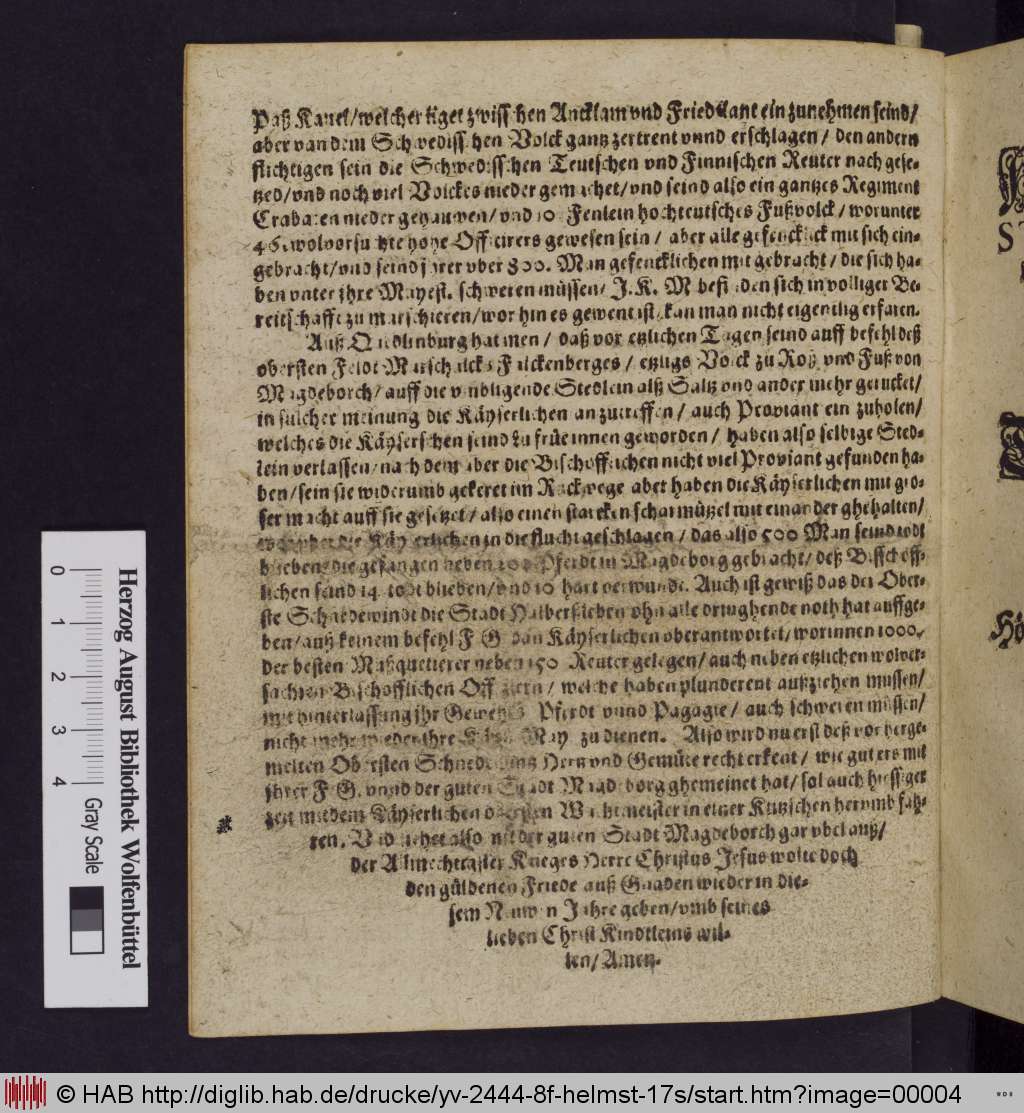 Paß Kavel/welcher liget zwisschen Ancklam vnd Friedtlant ein zunehmen seind/
aber van dem Schwedisschen Volck gantz zertrent vnnd erschlagen/ den andern
flichtigen sein die Schwedisschen Teutschen vnd Finnischen Reuter nach gese-
tzed/vnd noch viel Volckes nieder gemachet/vnd seind also ein gantzes Regiment
Crabaten nieder gehauwen/vnd 10 Fenlein hochteutsches Fußvolck/worunter
46. wolvorsuchte hohe Officirers gewesen sein/ aber alle gefencklick mit sich ein-
gebracht/vnd seind jhrer vber 800. Man gefencklichen mit gebracht/ die sich ha-
ben vnter jhre Mayest. schweren müssen/ J. K. M befinden sich in volliger Be-
reitschafft zu marschieren/wor hin es gewent ist/kan man nicht eigentlig erfaren.
Auß Quedlinburg hat men/ daß vor etzlichen Tagen seind auff befehl deß
obersten Feldt Marschalcks Falckenberges/ etzligs Volck zu Roß vnd Fuß von
Magdeborch/auff die vmbligende Stedlein alß Saltz vnd ander mehr gerucket/
in sulcher meinung die Käyserlichen anzutreffen/ auch Proviant ein zuholen/
welches die Käyserschen seind zu früe innen geworden/ haben also selbige Sted-
lein verlassen/nach dem aber die Bischofflichen nicht viel Proviant gefunden ha-
ben/sein sie widerumb gekeret im Rückwege aber haben die Käyserlichen mit gro-
ser macht auff sie gesetzet/ also einen starcken scharmützel mit einander ghehalten/
die Käyserlichen in die flucht geschlagen/ das also 500 Man seind todt
blieben/die gefangen neben 100 Pferdt in Magdeborg gebracht/ deß Bisschoff-
lichen seind 14. todt blieben/vnd 10 hart verwundt. Auch ist gewiß das der Ober-
ste Schnedewindt die Stadt Halberßleben ohn alle dringhende noth hat auffge-
ben/auß keinem befehl F G. dan Käyserlichen oberantwortet/worinnen 1000.
der besten Mußquetierer neben 150 Reuter gelegen/auch neben etzlichen wolver-
sachten Bischofflichen Officiern/ welche haben plunderent außziehen mussen/
mit hinterlassung jhr Gewehr Pferdt vnnd Pagagie/ auch schweren müssen/
nicht mehr wieder ihre Käys. May. zu dienen. Also wird nu erst deß vorherge-
melten Obersten Schnedewintz Hertz vnd Gemüte recht erkent/ wie gut ers mit
jhrer F G. vnnd der guten Stadt Magdeborg ghemeinet hat/sol auch hiessiger
zeit mit dem Käyserlichen obersten Wachtmeister in einer Kutzschen herumb fah-
ren. Vnd siehet also mit der guten Stadt Magdeborch gar vbel auß/
der Allmechtigster Krieges Herre Christus Jesus wolte doch
den güldenen Friede auß Gnaden wieder in die-
sem Neuwen Jahre geben/vmb seines
lieben Christ Kindtleins wil-
len/Amen.
0
1
2
3
4
Herzog August Bibliothek Wolfenbüttel
Gray Scale
© HAB http://diglib.hab.de/drucke/yv-2444-8f-helmst-17s/start.htm?image=00004